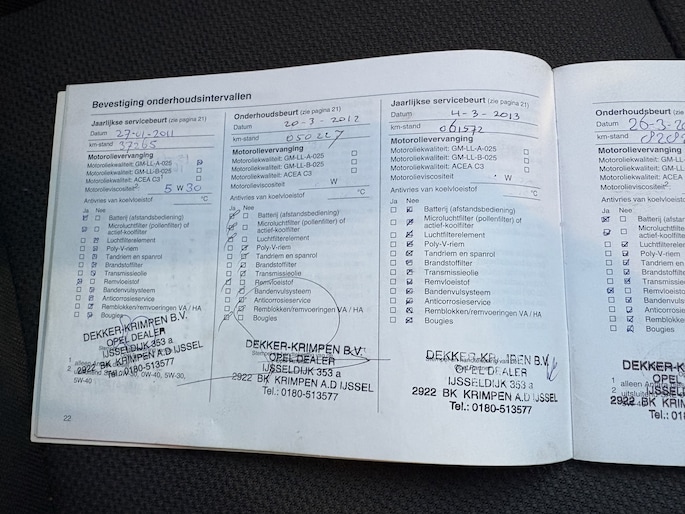 Bevestiging onderhoudsintervallen
Jaarlijkse servicebeurt (zie pagina 21)
Datum 27-01-2011
km-stand 37265
Motorolievervanging
Motoroliekwaliteit: GM-LL-A-025
Motoroliekwaliteit: GM-LL-B-025
Motoroliekwaliteit: ACEA C3
Motorolieviscositeit 5 W 30
Antivries van koelvloeistof °C
Ja Nee
Batterij (afstandsbediening)
Microluchtfilter (pollenfilter) of
actief-koolfilter
Luchtfilterelement
Poly-V-riem
Tandriem en spanrol
Brandstoffilter
Transmissieolie
Remvloeistof
Bandenvulsysteem
Anticorrosieservice
Remblokken/remvoeringen VA / HA
Bougies
DEKKER-KRIMPEN B.V.
OPEL DEALER
IJSSELDIJK 353 a
2922 BK KRIMPEN A.D IJSSEL
Tel.: 0180-513577
22
Onderhoudsbeurt (zie pagina 21)
Datum 20-3-2012
km-stand 050227
Motorolievervanging
Motoroliekwaliteit: GM-LL-A-025
Motoroliekwaliteit: GM-LL-B-025
Motoroliekwaliteit: ACEA C3
Motorolieviscositeit W
Antivries van koelvloeistof °C
Ja Nee
Batterij (afstandsbediening)
Microluchtfilter (pollenfilter) of
actief-koolfilter
Luchtfilterelement
Poly-V-riem
Tandriem en spanrol
Brandstoffilter
Transmissieolie
Remvloeistof
Bandenvulsysteem
Anticorrosieservice
Remblokken/remvoeringen VA / HA
Bougies
DEKKER-KRIMPEN B.V.
OPEL DEALER
IJSSELDIJK 353 a
2922 BK KRIMPEN A.D IJSSEL
Tel.: 0180-513577
Jaarlijkse servicebeurt (zie pagina 21)
Datum 4-3-2013
km-stand 061572
Motorolievervanging
Motoroliekwaliteit: GM-LL-A-025
Motoroliekwaliteit: GM-LL-B-025
Motoroliekwaliteit: ACEA C3
Motorolieviscositeit W
Antivries van koelvloeistof °C
Ja Nee
Batterij (afstandsbediening)
Microluchtfilter (pollenfilter) of
actief-koolfilter
Luchtfilterelement
Poly-V-riem
Tandriem en spanrol
Brandstoffilter
Transmissieolie
Remvloeistof
Bandenvulsysteem
Anticorrosieservice
Remblokken/remvoeringen VA / HA
Bougies
DEKKER-KRIMPEN B.V.
OPEL DEALER
IJSSELDIJK 353 a
2922 BK KRIMPEN A.D IJSSEL
Tel.: 0180-513577
Onderhoudsbeurt (zie
Datum 26-3-20
km-stand
Motorolievervanging
Motoroliekwaliteit: GM-L
Motoroliekwaliteit: GM-L
Motoroliekwaliteit: ACE
Motorolieviscositeit
Antivries van koelvloeis
Ja Nee
Batterij (afstands
Microluchtfilter (
actief-koolfilter
Luchtfiltereleme
Poly-V-riem
Tandriem en
Brandstoffilter
Transmissie
Remvloeisto
Bandenvuls
Anticorrosie
Remblokken
Bougies
DEKKER-K
OPEL
IJSSELD
2922 BK KRIM
Tel.: 0